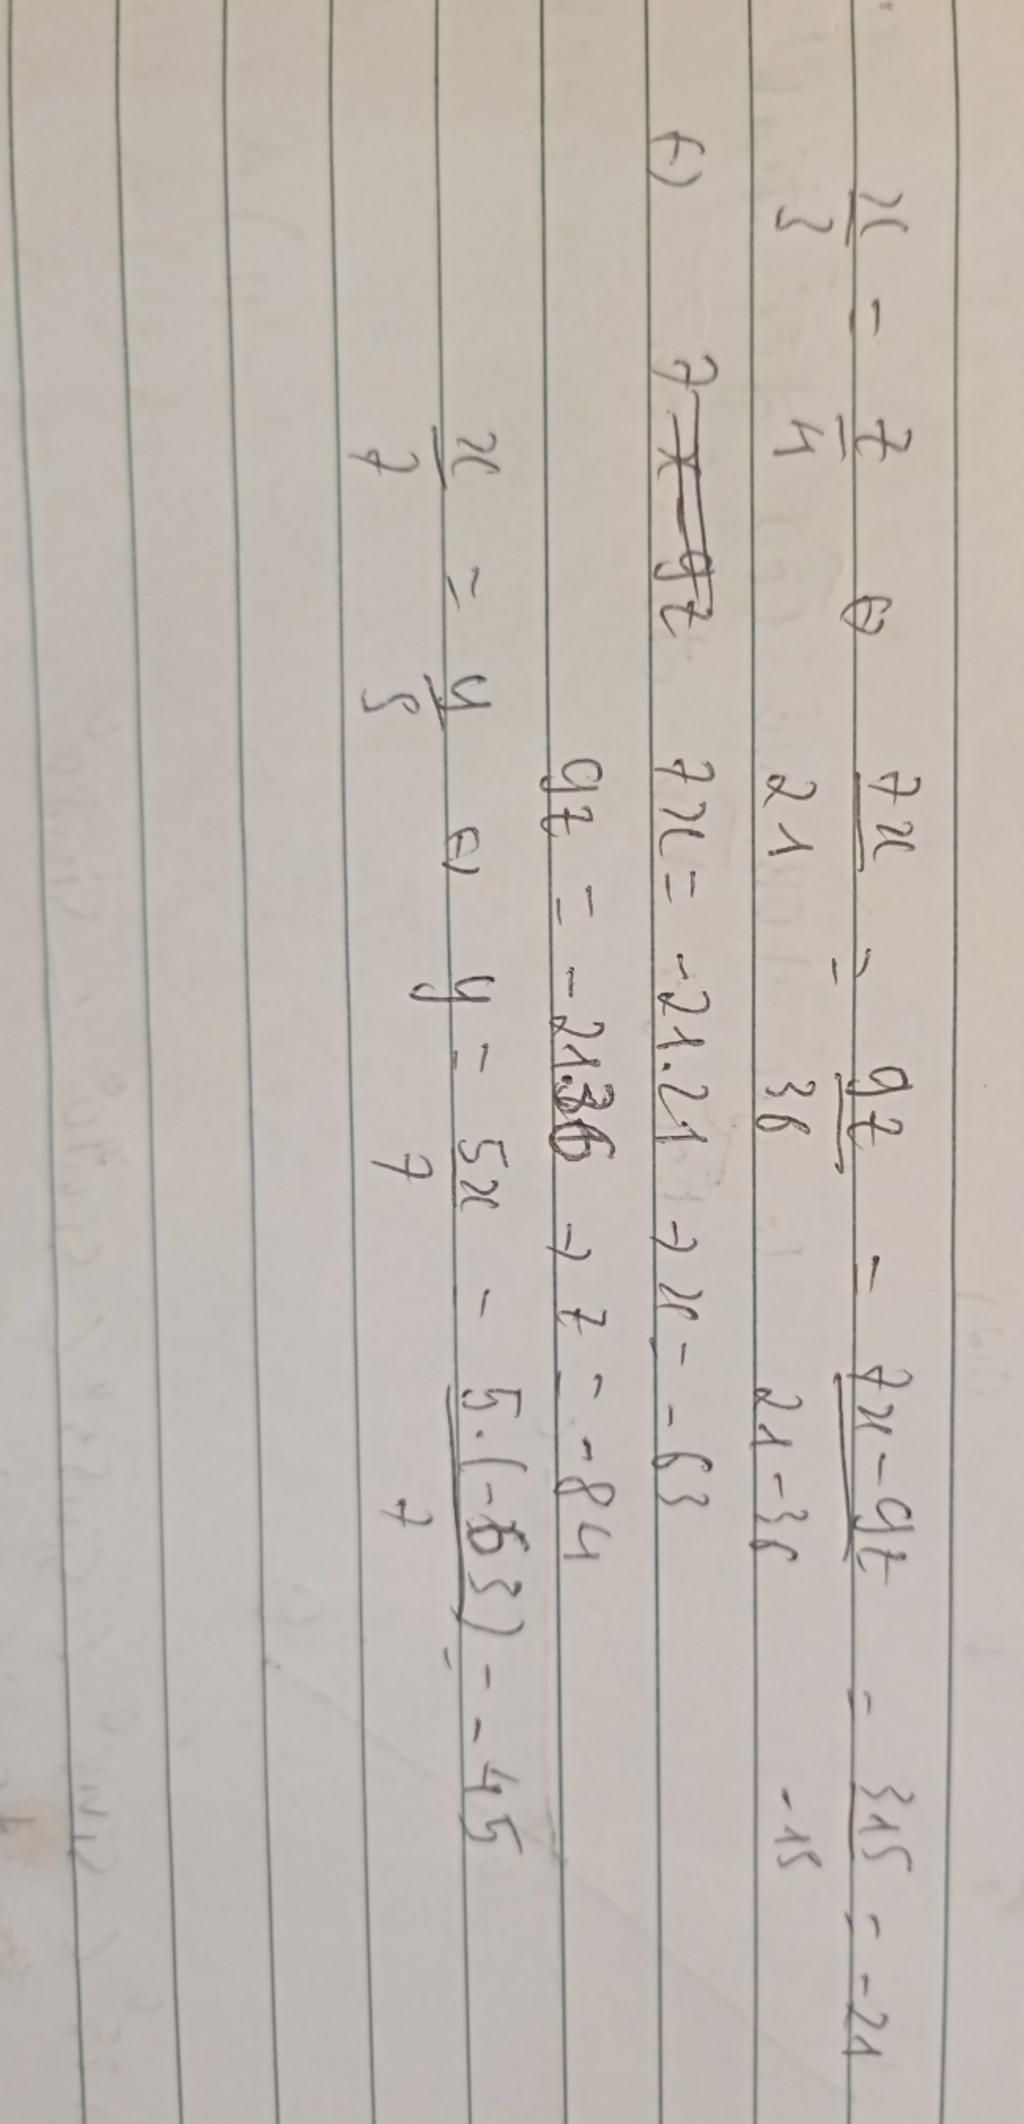 x/3 = z/4 ⇔ 7x/21 = 9z/36 = 7x-9z/21-36 = 315/-15 = -21
⇔ 7x-9z 7x = -21.21 → x = -63
9z = -21.36 → z = -84
x/7 = y/5 ⇔ y = 5x/7 = 5.(-63)/7 = -45